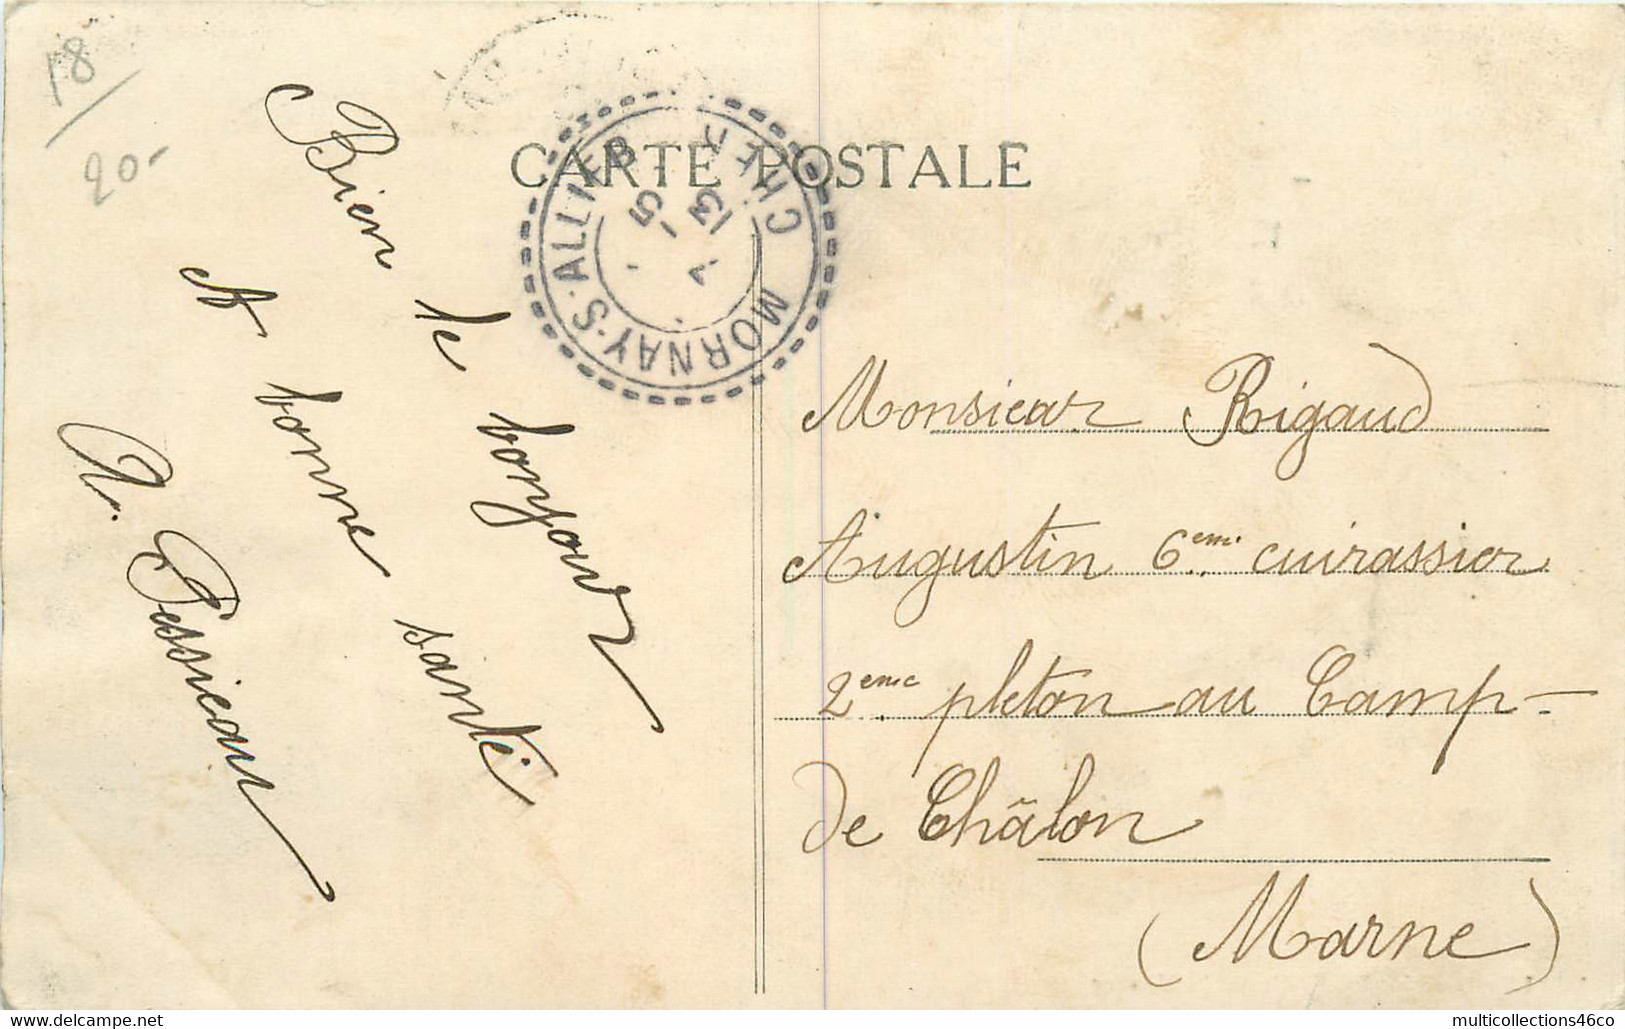 18
20-
CARTE POSTALE
MORNAY-S-ALLIER
CHER
13
5
Bien le bonjour
et bonne santé
A. Pessieaur
Monsieur Rigaud
Augustin 6eme cuirassier
2eme pleton au Camp-
de Châlon
(Marne)
multicollections46co
https://www.delcampe.net